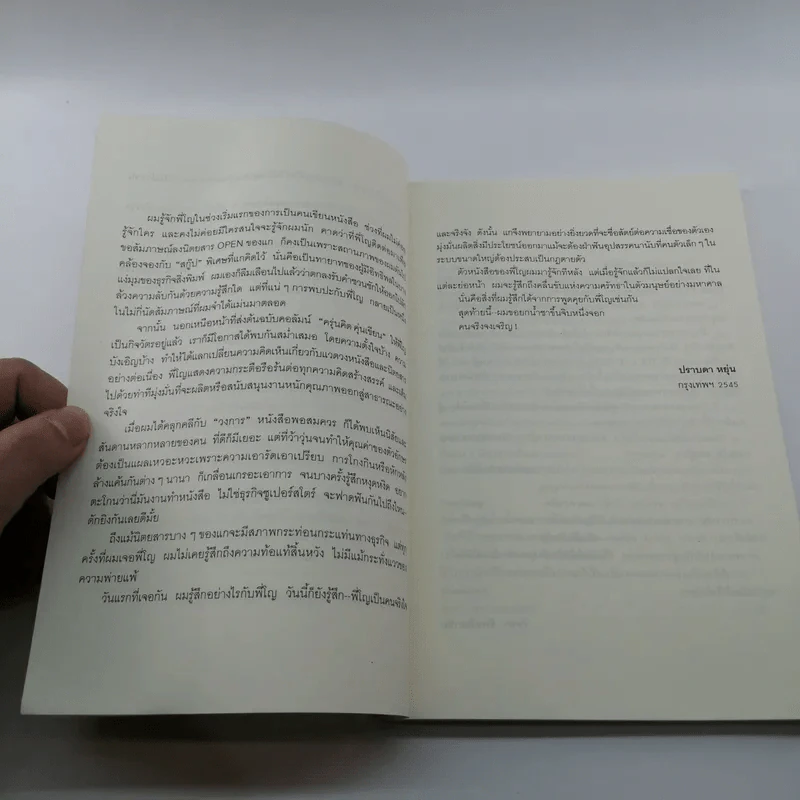 ผมรู้จักพี่โญในช่วงเริ่มแรกของการเป็นคนเขียนหนังสือ ช่วงที่ผมไม่ค่อย
รู้จักใคร และคงไม่ค่อยมีใครสนใจจะรู้จักผมนัก คาดว่าที่พี่โญติดต่อ
ขอสัมภาษณ์ลงนิตยสาร OPEN ของแก ก็คงเป็นเพราะสถานภาพของผม
คล้องจองกับ “สกู๊ป” พิเศษที่แกคิดไว้ นั่นคือเป็นทายาทของผู้มีอิทธิพลใน
แง่มุมของธุรกิจสิ่งพิมพ์ ผมเองก็ลืมเลือนไปแล้วว่าตกลงรับคำชวนซักให้
ล้วงความลับกันด้วยความรู้สึกใด แต่ที่แน่ ๆ การพบปะกับพี่โญ กลายเป็นหนึ่ง
ในไม่กี่นัดสัมภาษณ์ที่ผมจำได้แม่นมาตลอด
จากนั้น นอกเหนือหน้าที่ส่งต้นฉบับคอลัมน์ “ครุ่นคิด คุ่นเขียน” ให้พี่โญ
เป็นกิจวัตรอยู่แล้ว เราก็มีโอกาสได้พบกันสม่ำเสมอ โดยความตั้งใจบ้าง ความ
บังเอิญบ้าง ทำให้ได้แลกเปลี่ยนความคิดเห็นเกี่ยวกับแวดวงหนังสือและนิตยสาร
อย่างต่อเนื่อง พี่โญแสดงความกระตือรือร้นต่อทุกความคิดสร้างสรรค์ และ
ไปด้วยท่าทีมุ่งมั่นที่จะผลิตหรือสนับสนุนงานหนักคุณภาพออกสู่สาธารณะอย่าง
จริงใจ
เมื่อผมได้คลุกคลีกับ “วงการ” หนังสือพอสมควร ก็ได้พบเห็นนิสัยและ
สันดานหลากหลายของคน ที่ดีก็มีเยอะ แต่ที่ว้าวุ่นจนทำให้คุณค่าของตัวอักษร
ต้องเป็นแผลเหวอะหวะเพราะความเอารัดเอาเปรียบ การโกงกินหรือหักหลัง
ล้างแค้นกันต่าง ๆ นานา ก็เกลื่อนเกรอะเอาการ จนบางครั้งรู้สึกหงุดหงิด อยาก
ตะโกนว่านี่มันงานทำหนังสือ ไม่ใช่ธุรกิจซูเปอร์สโตร์ จะฟาดฟันกันไปถึงไหน
ดักยิงกันเลยดีมั้ย
ถึงแม้นิตยสารบาง ๆ ของแกจะมีสภาพกระท่อนกระแท่นทางธุรกิจ แต่ทุก
ครั้งที่ผมเจอพี่โญ ผมไม่เคยรู้สึกถึงความท้อแท้สิ้นหวัง ไม่มีแม้กระทั่งแววของ
ความพ่ายแพ้
วันแรกที่เจอกัน ผมรู้สึกอย่างไรกับพี่โญ วันนี้ก็ยังรู้สึก--พี่โญเป็นคนจริงใจ
และจริงจัง ดังนั้น แกจึงพยายามอย่างยิ่งยวดที่จะซื่อสัตย์ต่อความเชื่อของตัวเอง
มุ่งมั่นผลิตสิ่งมีประโยชน์ออกมาแม้จะต้องฝ่าฟันอุปสรรคนานับที่คนตัวเล็ก ๆ ใน
ระบบขนาดใหญ่ต้องประสบเป็นกฎตายตัว
ตัวหนังสือของพี่โญผมมารู้จักทีหลัง แต่เมื่อรู้จักแล้วก็ไม่แปลกใจเลย ที่ใน
แต่ละย่อหน้า ผมจะรู้สึกถึงคลื่นรับแห่งความศรัทธาในตัวมนุษย์อย่างมหาศาล
นั่นคือสิ่งที่ผมรู้สึกได้จากการพูดคุยกับพี่โญเช่นกัน
สุดท้ายนี้--ผมขอยกน้ำชาขึ้นจิบหนึ่งจอก
คนจริงจงเจริญ !
ปราบดา หยุ่น
กรุงเทพฯ 2545